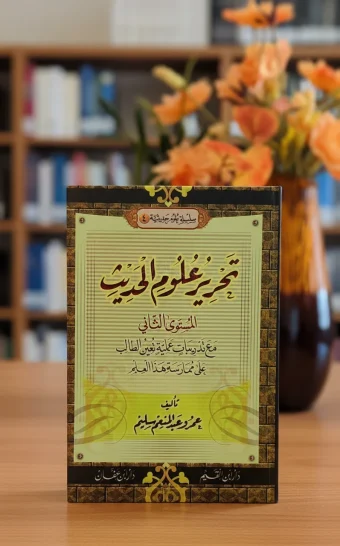 سلسلة ٤
تحرير علوم الحديث
المستوى الثاني
مع تدريبات عملية تعين الطالب
على ممارسة هذا العلم
تأليف
عمرو عبد المنعم سليم
دار ابن القيم
دار ابن عفان